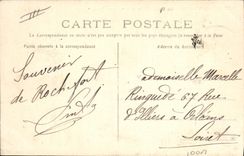 III
CARTE POSTALE
La Correspondance au recto n'est pas acceptée par tous les pays étrangers
Partie réservée à la correspondance
Adresse du destinataire
Souvenir
de Rochefort
Mademoiselle Marcelle
67 Rue
d'Illiers à Orléans
Loiret